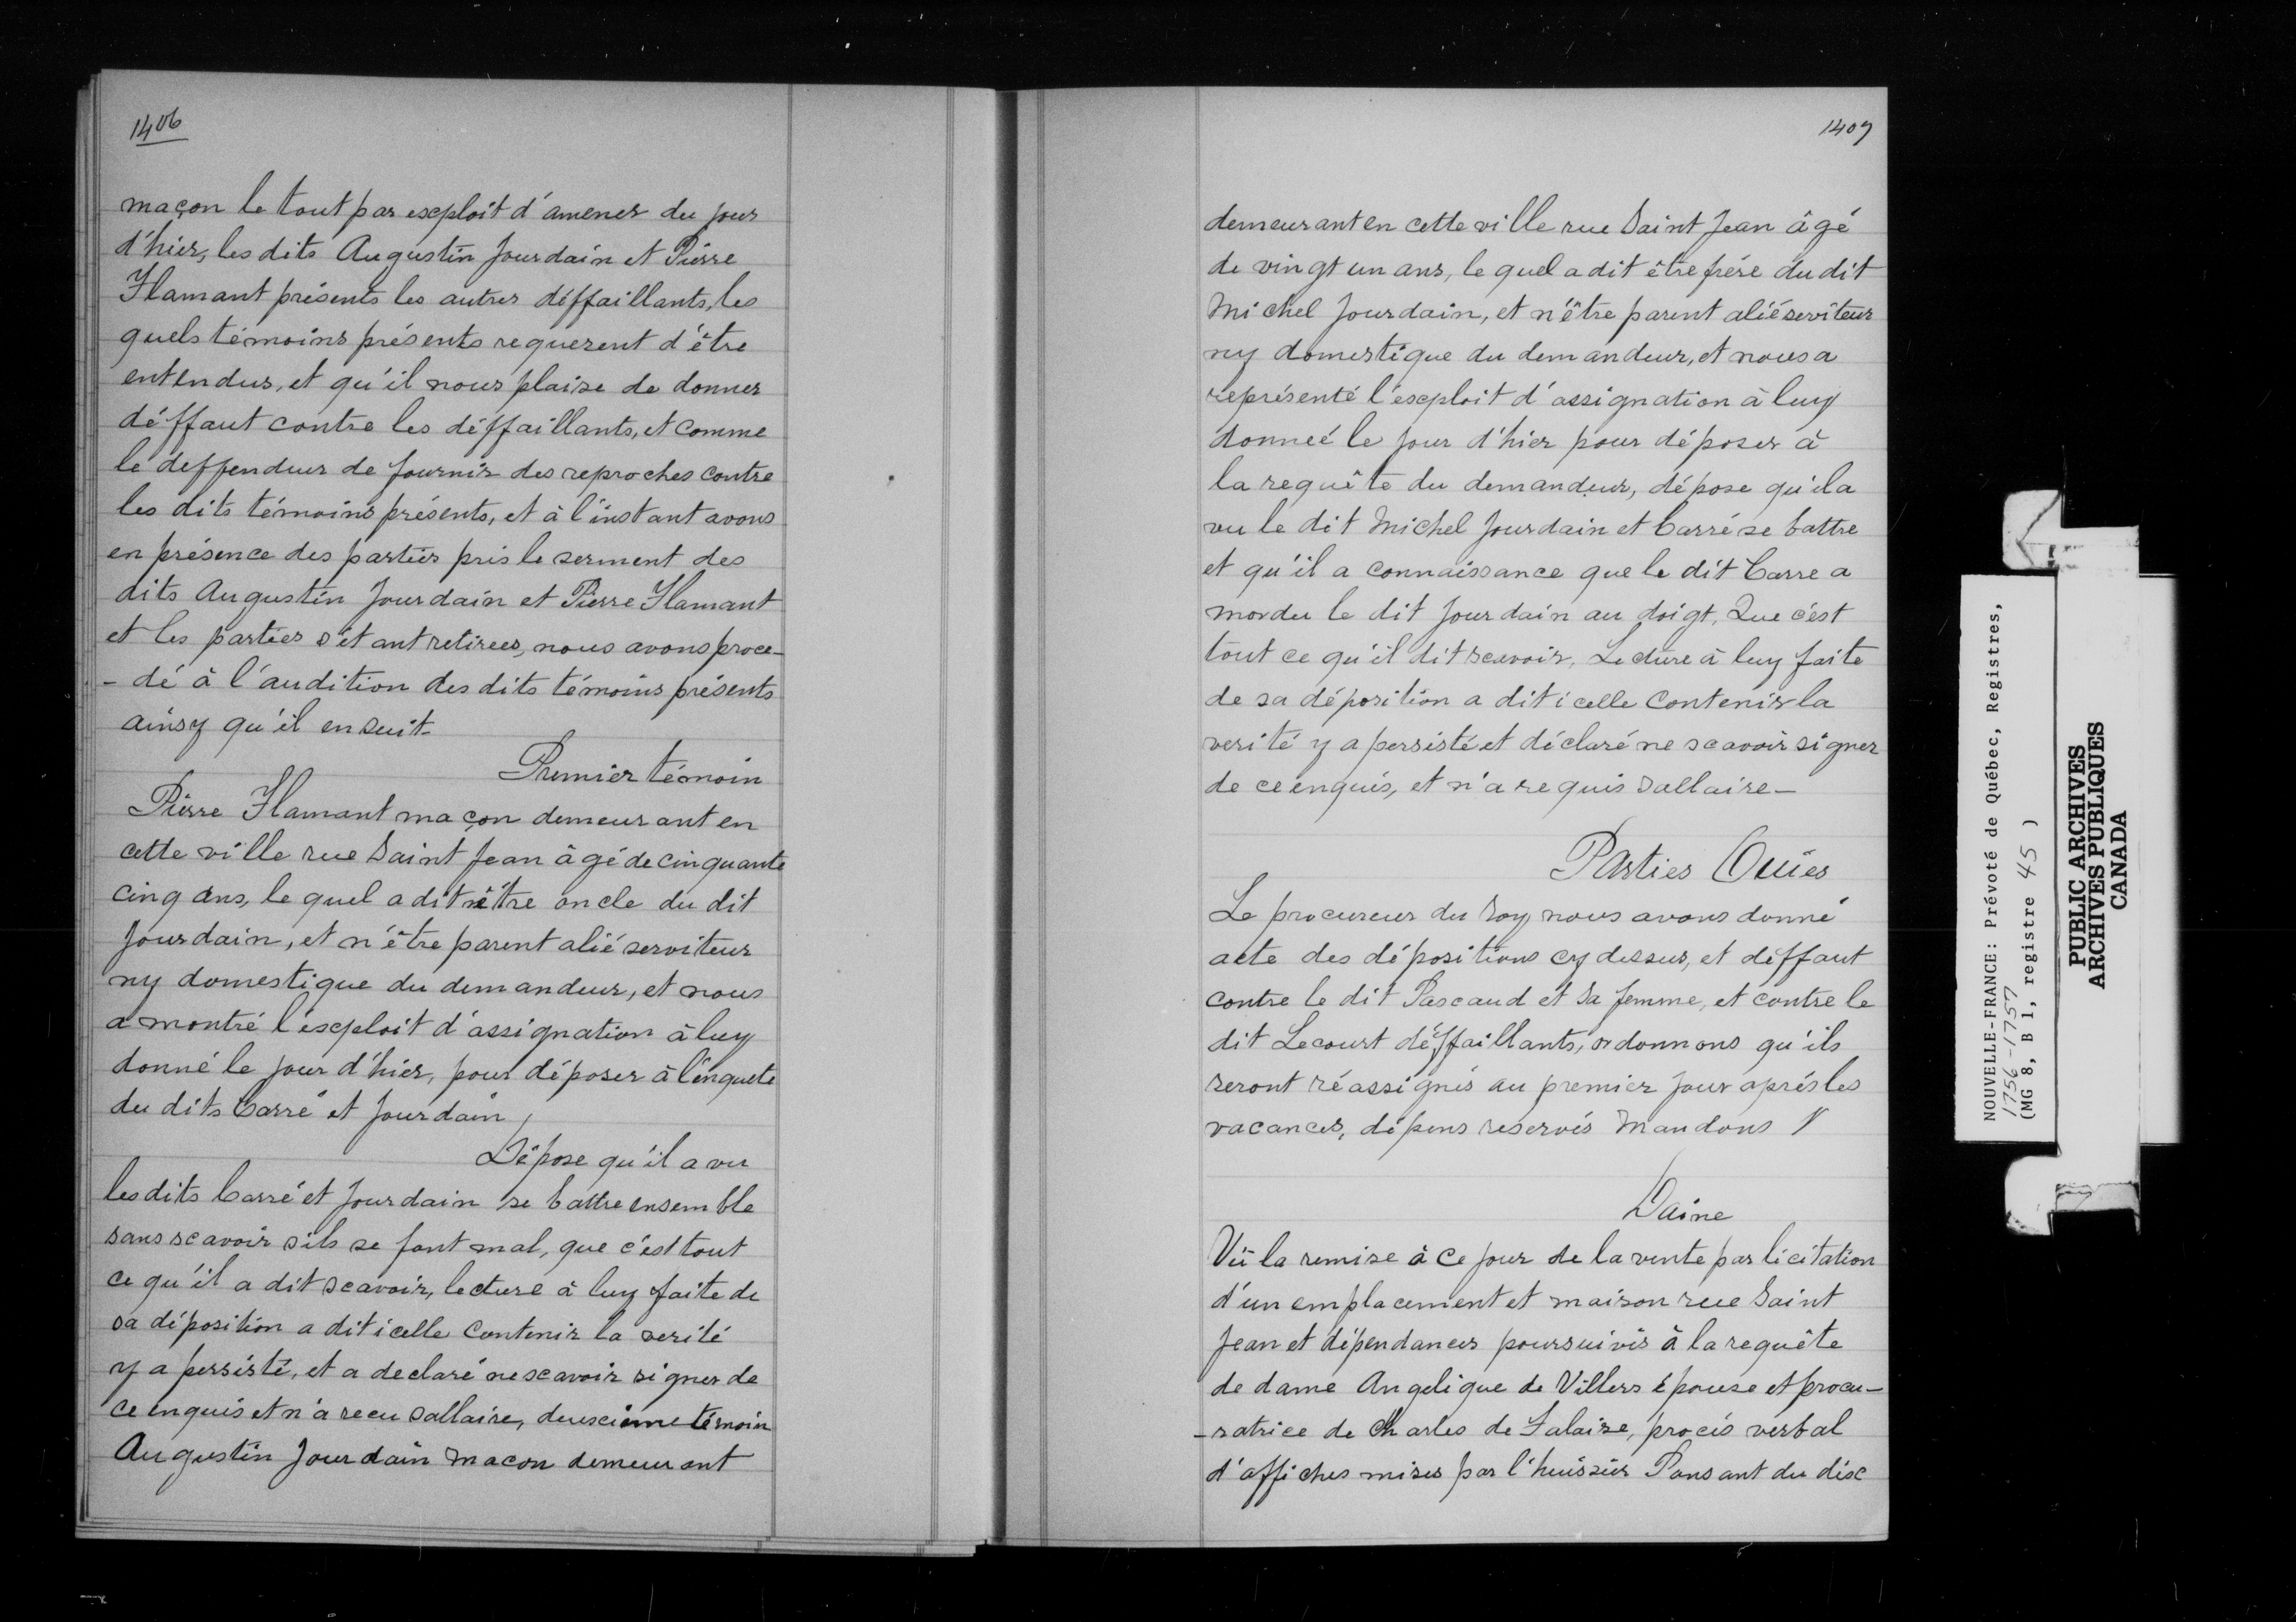 1406
maçon le tout par exploit d'amener du jour
d'hier, les dits Augustin Jourdain et Pierre
Flamant présents les autres déffaillants, les
quels témoins présents requerent d'être
entendus, et qu'il nous plaise de donner
déffaut contre les déffaillants, et comme
le deffendeur de fournir des reproches contre
les dits témoins présents, et à l'instant avons
en présence des parties pris le serment des
dits Augustin Jourdain et Pierre Flamant
et les parties s'étant retirées, nous avons proce-
- dé à l'audition des dits témoins présents
ainsy qu'il en suit.
Premier témoin
Pierre Flamant maçon demeurant en
cette ville rue Saint Jean âgé de cinquante
cinq ans, le quel a dit nêtre oncle du dit
Jourdain, et n'être parent alié serviteur
ny domestique du demandeur, et nous
a montré l'exploit d'assignation à luy
donné le jour d'hier, pour déposer à l'enquete
du dits Carré et Jourdain,
Dépose qu'il a vu
les dits Carré et Jourdain se battre ensemble
sans scavoir sils se font mal, que c'est tout
ce qu'il a dit scavoir, lecture à luy faite de
sa déposition a dit icelle contenir la verité
y a persisté, et a declaré ne scavoir signer de
ce enquis et n'a recu sallaire, deuxcième témoin
Augustin Jourdain macon demeurant
1407
demeurant en cette ville rue Saint Jean âgé
de vingt un ans, le quel a dit être frére du dit
Michel Jourdain, et n'être parent alié serviteur
ny domestique du demandeur, et nous a
représenté l'exploit d'assignation à luy
donneé le jour d'hier pour déposer à
la requête du demandeur, dépose qu'il a
vu le dit Michel Jourdain et Carré se battre
et qu'il a connaissance que le dit Carre a
mordu le dit Jourdain au doigt, Que c'est
tout ce qu'il dit scavoir, Lecture à luy faite
de sa déposition a dit icelle contenir la
verité y a persisté et déclaré ne scavoir signer
de ce enquis, et n'a requis sallaire -
Parties Ouies
Le procureur du roy nous avons donné
acte des dépositions cy dessus, et déffaut
contre le dit Pascaud et sa femme, et contre le
dit Lecourt déffaillants, ordonnons qu'ils
seront réassignés au premier jour aprés les
vacances, dépens reservés Mandons //
Daine
Vû la remise à ce jour de la vente par licitation
d'un emplacement et maison rue Saint
Jean et dépendances poursuivis à la requête
de dame Angelique de Villers épouse et procu-
- ratrice de Charles de Falaise, procés verbal
d'affiches mises par l'huissier Pansant du dix
NOUVELLE-FRANCE: Prévoté de Québec, Registres,
1756-1757
(MG 8, B 1, registre 45 )
PUBLIC ARCHIVES
ARCHIVES PUBLIQUES
CANADA